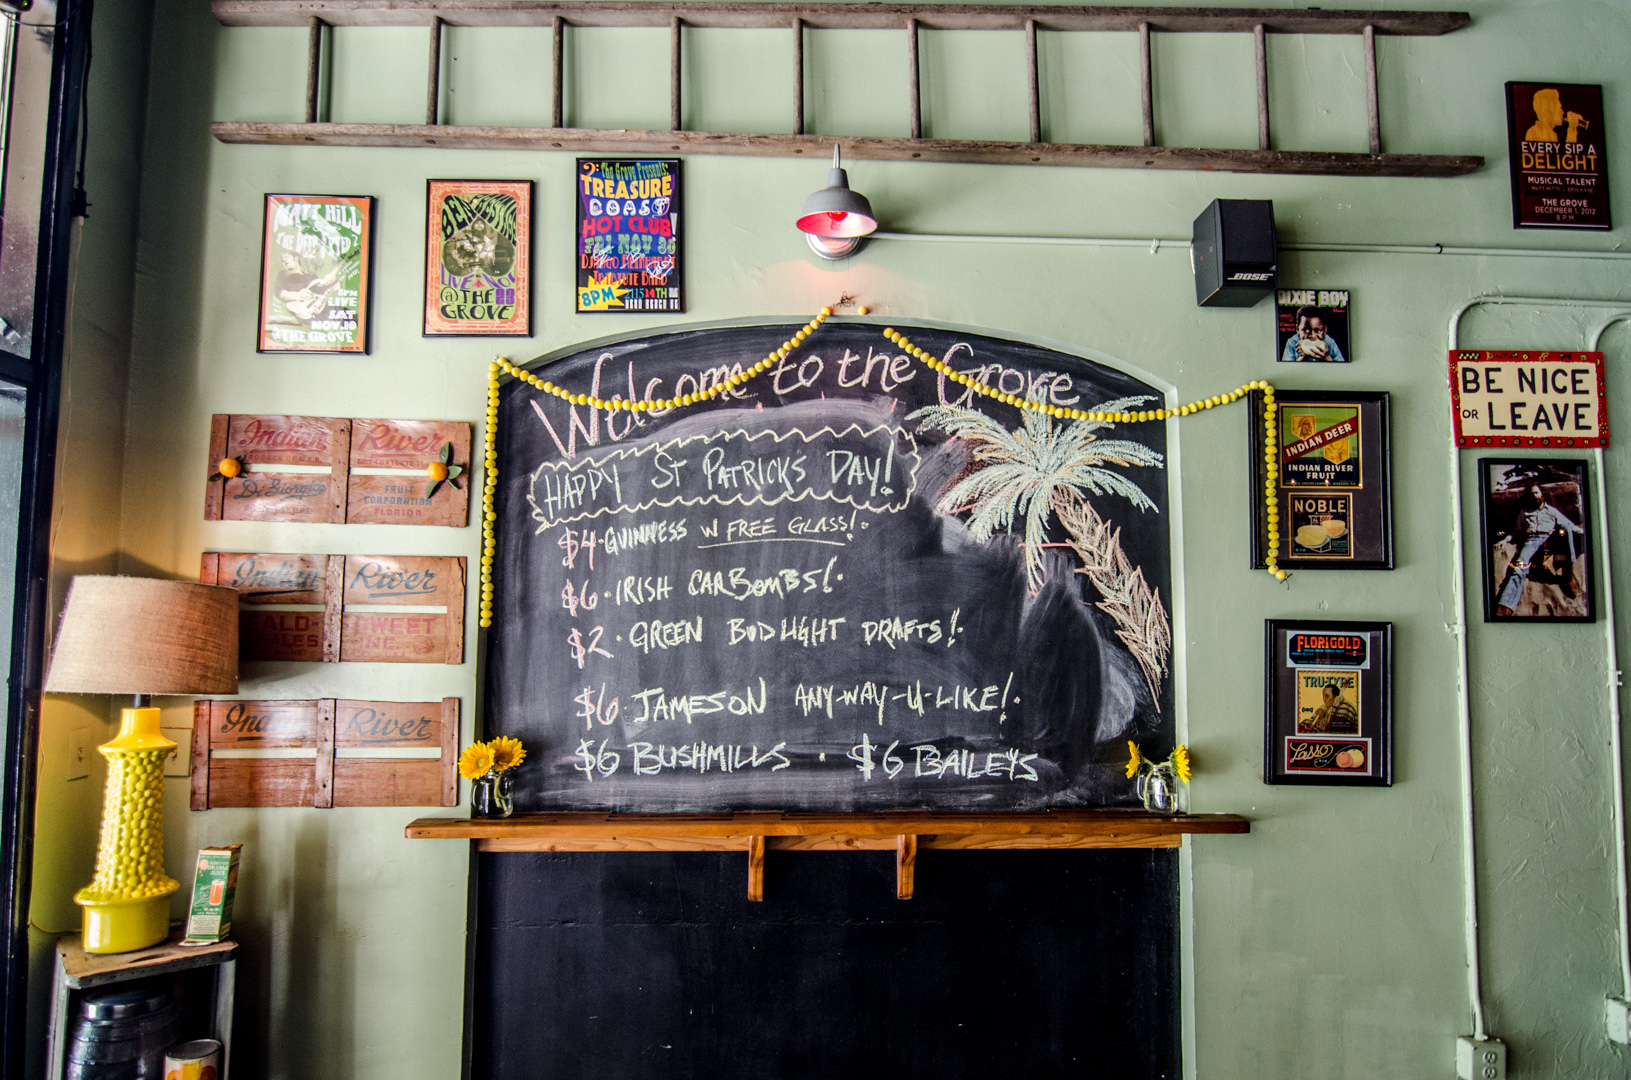 EVERY SIP A
DELIGHT
MUSICAL TALENT
THE GROVE
DECEMBER 1, 2012
8 P.M.
The Grove Presents:
TREASURE
COAST
HOT CLUB
FRI NOV 30
DJANGO REINHARDT
TRIBUTE BAND
8PM
2115 14TH
MATT HILL
8PM
LIVE
SAT
NOV.10
@ THE GROVE
LIVE
@ THE
GROVE
BOSE
DIXIE BOY
BE NICE
OR LEAVE
Welcome to the Grove
HAPPY ST PATRICKS DAY!
$4 · GUINNESS W FREE GLASS!
$6 · IRISH CARBOMBS!
$2 · GREEN BUD LIGHT DRAFTS!
$6 · JAMESON ANY-WAY-U-LIKE!
$6 BUSHMILLS · $6 BAILEYS
Indian River
Di Giorgio
FRUIT
CORPORATION
FLORIDA
Indian River
SWEET
INC.
Indian River
INDIAN DEER
INDIAN RIVER
FRUIT
NOBLE
FLORIGOLD
TRU-TYPE
Lasso
JUICE